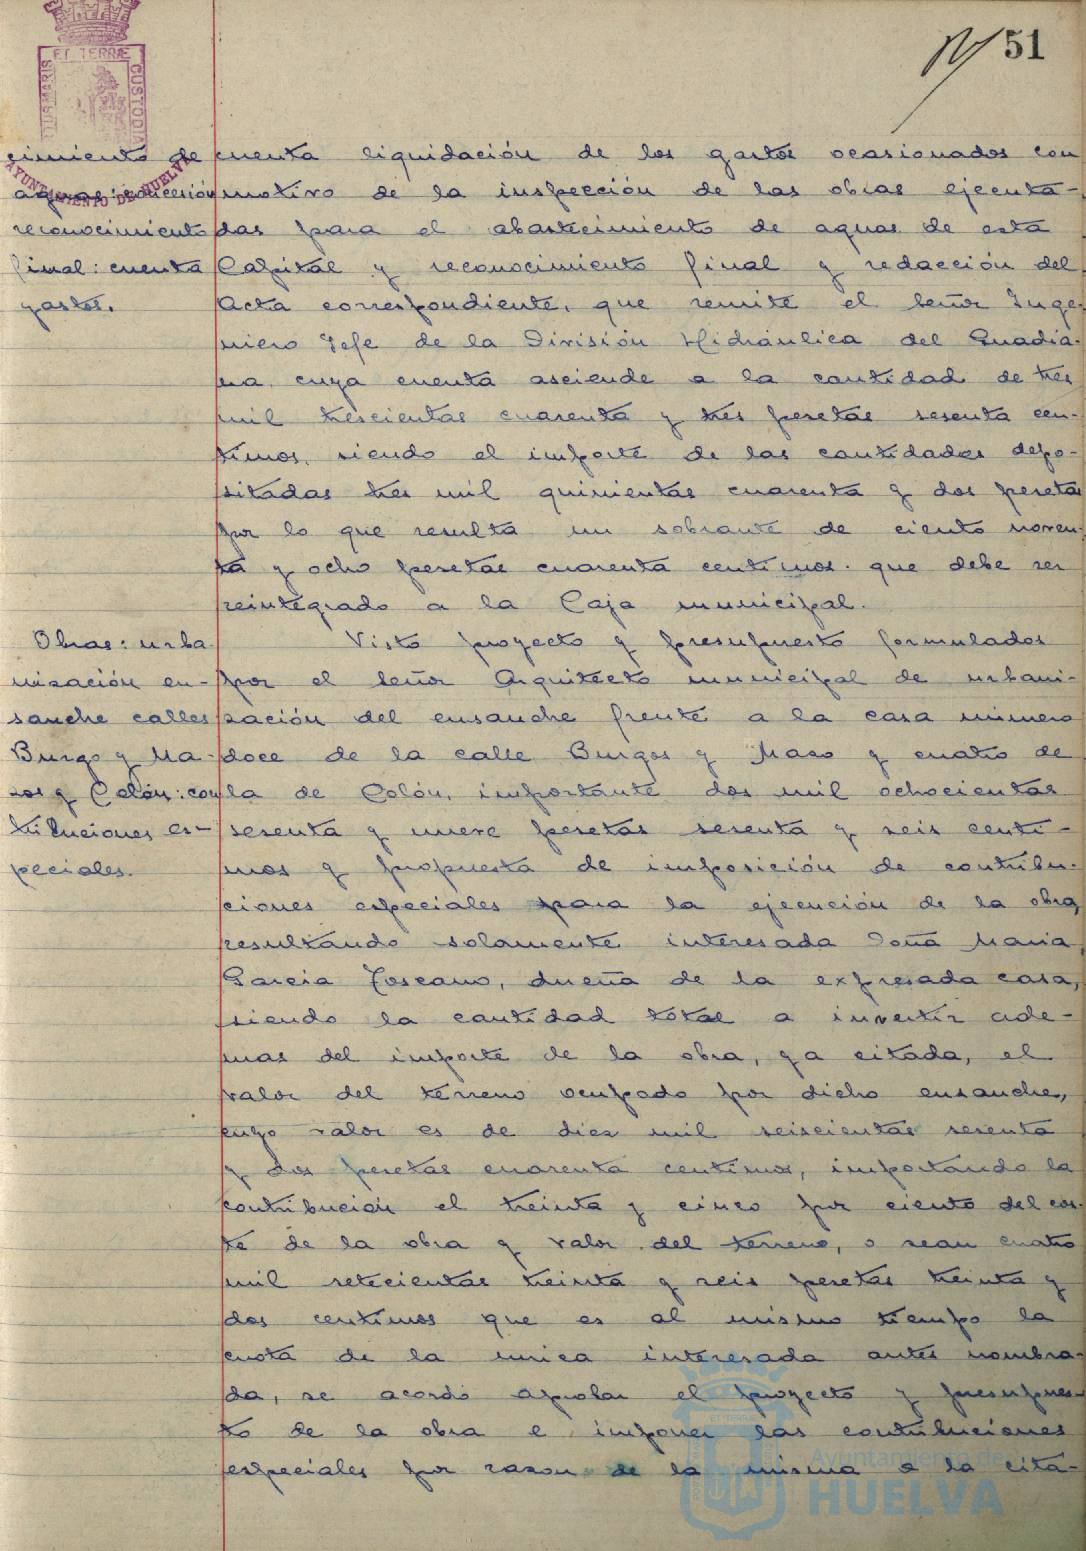 51
ET TERRÆ
CUSTODIA
AYUNTAMIENTO DE HUELVA
cimiento de
aguas:
reconocimiento
final: cuenta
gastos.
cuenta liquidación de los gastos ocasionados con
motivo de la inspección de las obras ejecuta-
das para el abastecimiento de aguas de esta
Capital y reconocimiento final y redacción del
Acta correspondiente, que remite el señor Inge-
niero Jefe de la División Hidráulica del Guadia-
na, cuya cuenta asciende a la cantidad de tres
mil trescientas cuarenta y tres pesetas sesenta cen-
timos, siendo el importe de las cantidades depo-
sitadas tres mil quinientas cuarenta y dos pesetas
por lo que resulta un sobrante de ciento noven-
ta y ocho pesetas cuarenta centimos. que debe ser
reintegrado a la Caja municipal.
Obras: urba
nización en-
sanche calles
Burgo y Ma-
sos y Colón: con
tribuciones es-
peciales.
Visto proyecto y presupuesto formulados
por el señor Arquitecto municipal de urbani-
zación del ensanche frente a la casa número
doce de la calle Burgos y Maso y cuatro de
la de Colón, importante dos mil ochocientas
sesenta y nueve pesetas sesenta y seis centi-
mos y propuesta de imposición de contribu-
ciones especiales para la ejecución de la obra,
resultando solamente interesada Doña Maria
Garcia Toscano, dueña de la expresada casa,
siendo la cantidad total a invertir ade-
mas del importe de la obra, ya citada, el
valor del terreno ocupado por dicho ensanche,
cuyo valor es de diez mil seiscientas sesenta
y dos pesetas cuarenta centimos, importando la
contribución el treinta y cinco por ciento del cos-
te de la obra y valor del terreno, o sean cuatro
mil setecientas treinta y seis pesetas treinta y
dos centimos que es al mismo tiempo la
cuota de la unica interesada antes nombra-
da, se acordó aprobar el proyecto y presupues-
to de la obra e imponer las contribuciones
especiales por razon de la misma a la cita-
Ayuntamiento de
HUELVA